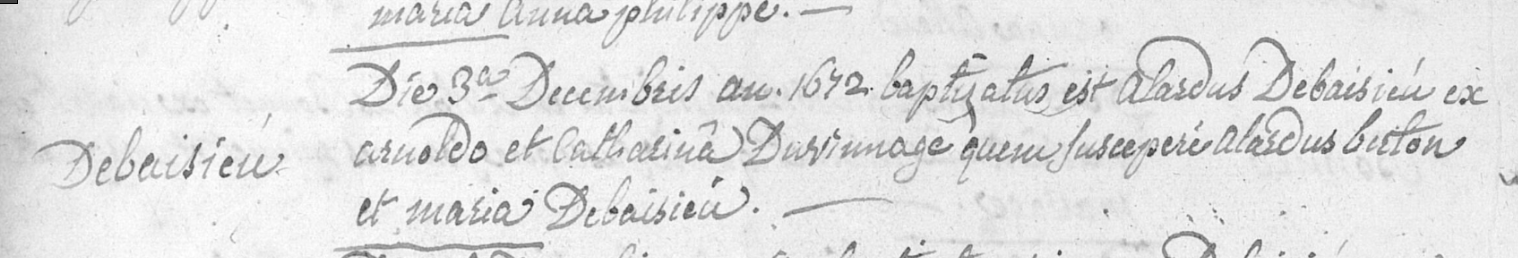 maria anna philippe. —
Die 3a Decembris an. 1672. baptizatus est Alardus Debaisieu ex
Debaisieu arnoldo et Catharinâ Duvinnage quem suscepere Alardus buton
et maria Debaisieu. —